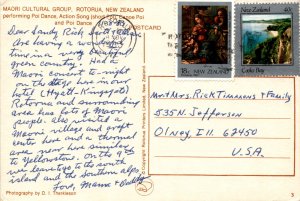 MAORI CULTURAL GROUP, ROTORUA, NEW ZEALAND
performing Poi Dance, Action Song (short Poi), Canoe Poi
and Poi Dance
POSTCARD
Dear Sandy, Rick,
Are having a wonderful
time in a very
green country. Had a
Maori concert to-night
on the stage here in our
hotel (Hyatt-Kingsgate)
Rotorua and surrounding
area has lots of Maori
people. Also visited a
Maori village and craft
center here and a thermal
area near here similar
to Yellowstone. On the 9th
we leave to the south
island and the southern alps.
Love, Mama &
Photography by D. I. Thorkleson
Copyright Rotorua Printers Limited, New Zealand
18c NEW ZEALAND
New Zealand 40c
Curio Bay
Mr & Mrs. Rick Timmons & Family
535 N. Jefferson
Olney, Ill 62450
U.S.A.
3